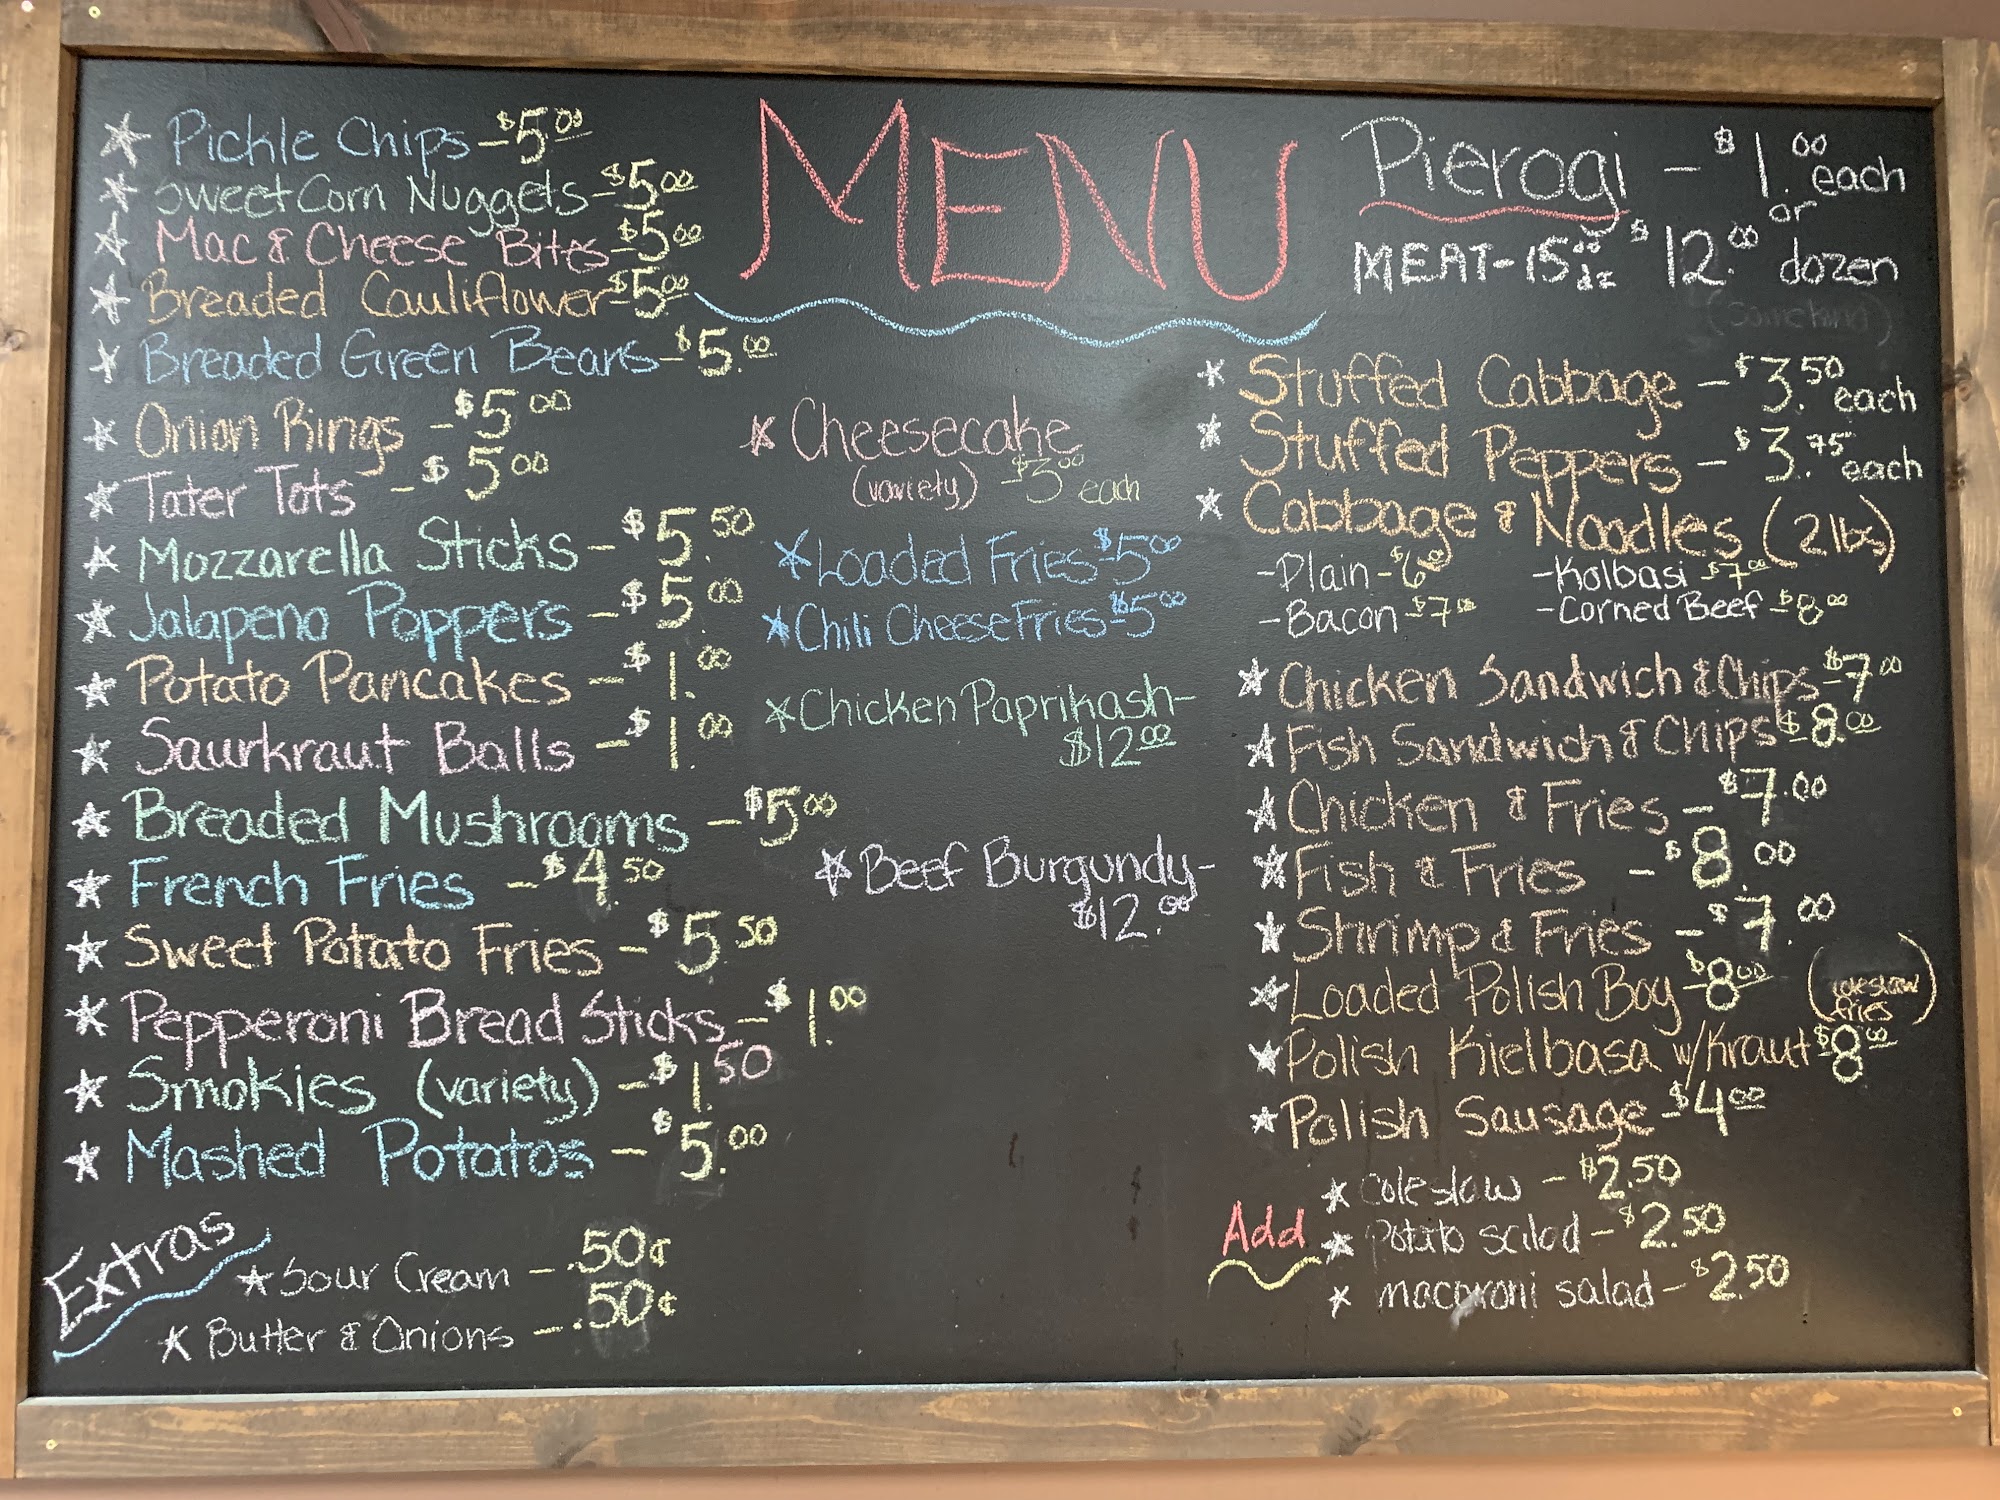 MENU
★ Pickle Chips - $5.00
★ Sweet Corn Nuggets - $5.00
★ Mac & Cheese Bites - $5.00
★ Breaded Cauliflower - $5.00
★ Breaded Green Beans - $5.00
★ Onion Rings - $5.00
★ Tater Tots - $5.00
★ Mozzarella Sticks - $5.50
★ Jalapeno Poppers - $5.00
★ Potato Pancakes - $1.00
★ Saurkraut Balls - $1.00
★ Breaded Mushrooms - $5.00
★ French Fries - $4.50
★ Sweet Potato Fries - $5.50
★ Pepperoni Bread Sticks - $1.00
★ Smokies (variety) - $1.50
★ Mashed Potatos - $5.00
Extras
★ Sour Cream - .50¢
★ Butter & Onions - .50¢
★ Cheesecake
(variety) $3.00 each
★ Loaded Fries $5.00
★ Chili Cheese Fries $5.00
★ Chicken Paprikash -
$12.00
★ Beef Burgundy -
$12.00
Pierogi - $1.00 each
or
MEAT - 15.00 dz $12.00 dozen
★ Stuffed Cabbage - $3.50 each
★ Stuffed Peppers - $3.75 each
★ Cabbage & Noodles (2 lbs)
- Plain - $6.00 - Kolbasi $7.00
- Bacon - $7.00 - Corned Beef - $8.00
★ Chicken Sandwich & Chips - $7.00
★ Fish Sandwich & Chips $8.00
★ Chicken & Fries - $7.00
★ Fish & Fries - $8.00
★ Shrimp & Fries - $7.00
★ Loaded Polish Boy - $8.00 (coleslaw
fries)
★ Polish Kielbasa w/Kraut $8.00
★ Polish Sausage - $4.00
Add
★ coleslaw - $2.50
★ potato salad - $2.50
★ macaroni salad - $2.50